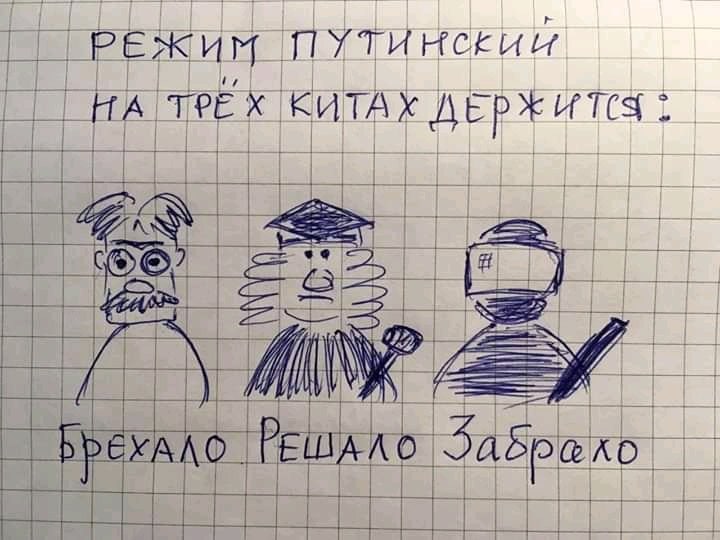 РЕЖИМ ПУТИНСКИЙ
НА ТРЁХ КИТАХ ДЕРЖИТСЯ:
БРЕХАЛО РЕШАЛО Забрало